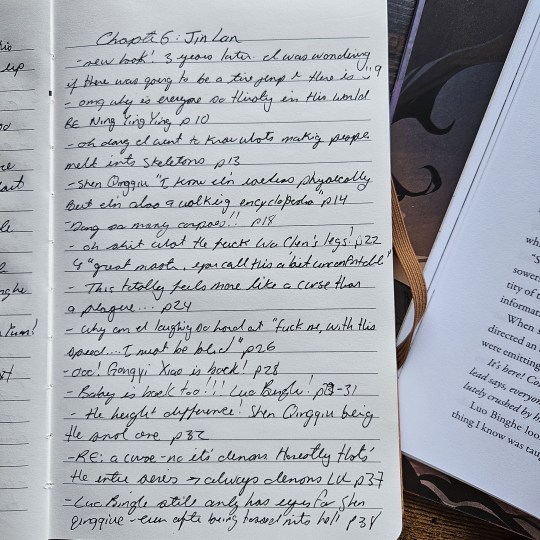 his
up
Chapter 6: Jin Lan
- new book! 3 years later. I was wondering
if there was going to be a time jump & there is p9
- omg why is everyone so thirsty in this world
RE Ning Ying Ying p10
- oh dang I want to know whats making people
melt into skeletons p13
- Shen Qingqiu "I know I'm useless physically
But I'm also a walking encyclopedia" p14
- Dang so many corpses!! p18
- oh shit what the fuck Wu Chen's legs! p22
↳ "great master, you call this a 'bit uncomfortable'"
- This totally feels more like a curse than
a plague... p24
- why am I laughing so hard at "fuck me, with this
speed.... I must be blind" p26
- ooo! Gongyi Xiao is back! p28
- Baby is back too!!! Luo Binghe! -31
- the height difference! Shen Qingqiu being
the small one p32
- RE: a curse - no its demons Honestly thats
the entire series → always demons LU p37
- Luo Binghe still only has eyes for Shen
Qingqiu - even after being tossed into hell p38
"S
sowers
tity of t
informat
When s
directed an
were emitting
It's here! Co
lead says, everyon
lutely crushed by h
Luo Binghe loo
thing I know was taug